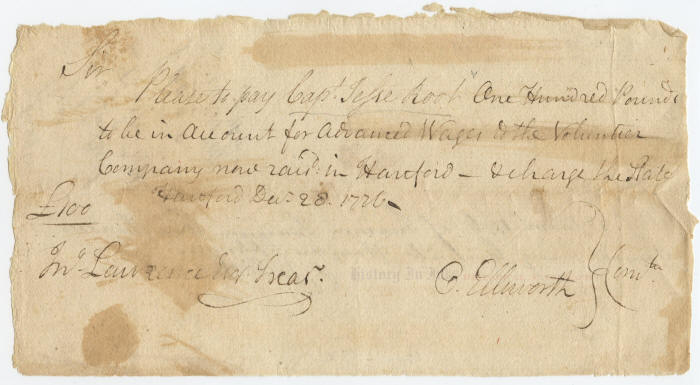 Sir
Please to pay Capt. Jesse Root One Hundred Pounds
to be in account for advanced Wages to the Voluntier
Company now raisd. in Hartford — & charge the State
Hartford Decr. 28. 1776 —
£100
Jno. Lawrence Esqr. Treasr.
O. Ellsworth } Comtee